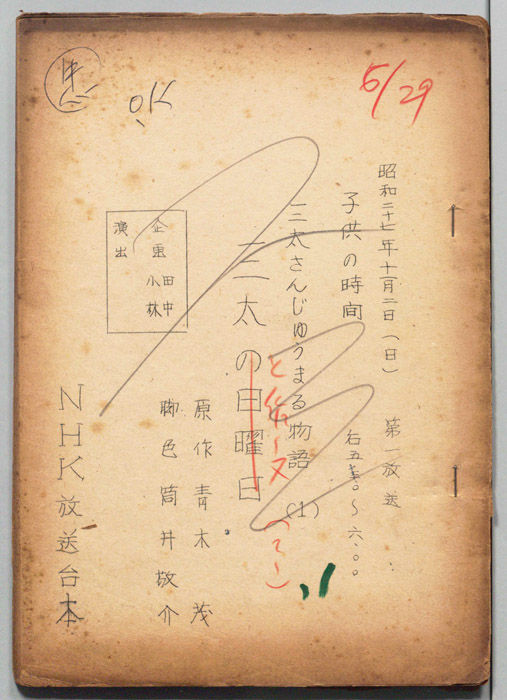 OK
5/29
昭和二十七年十一月二日(日) 第一放送
子供の時間 后五・三〇〜六・〇〇
三太さんじゅうまる物語(1)
三太の日曜日
企画 田中
演出 小林
原作 青木茂
脚色 筒井敬介
NHK放送台本